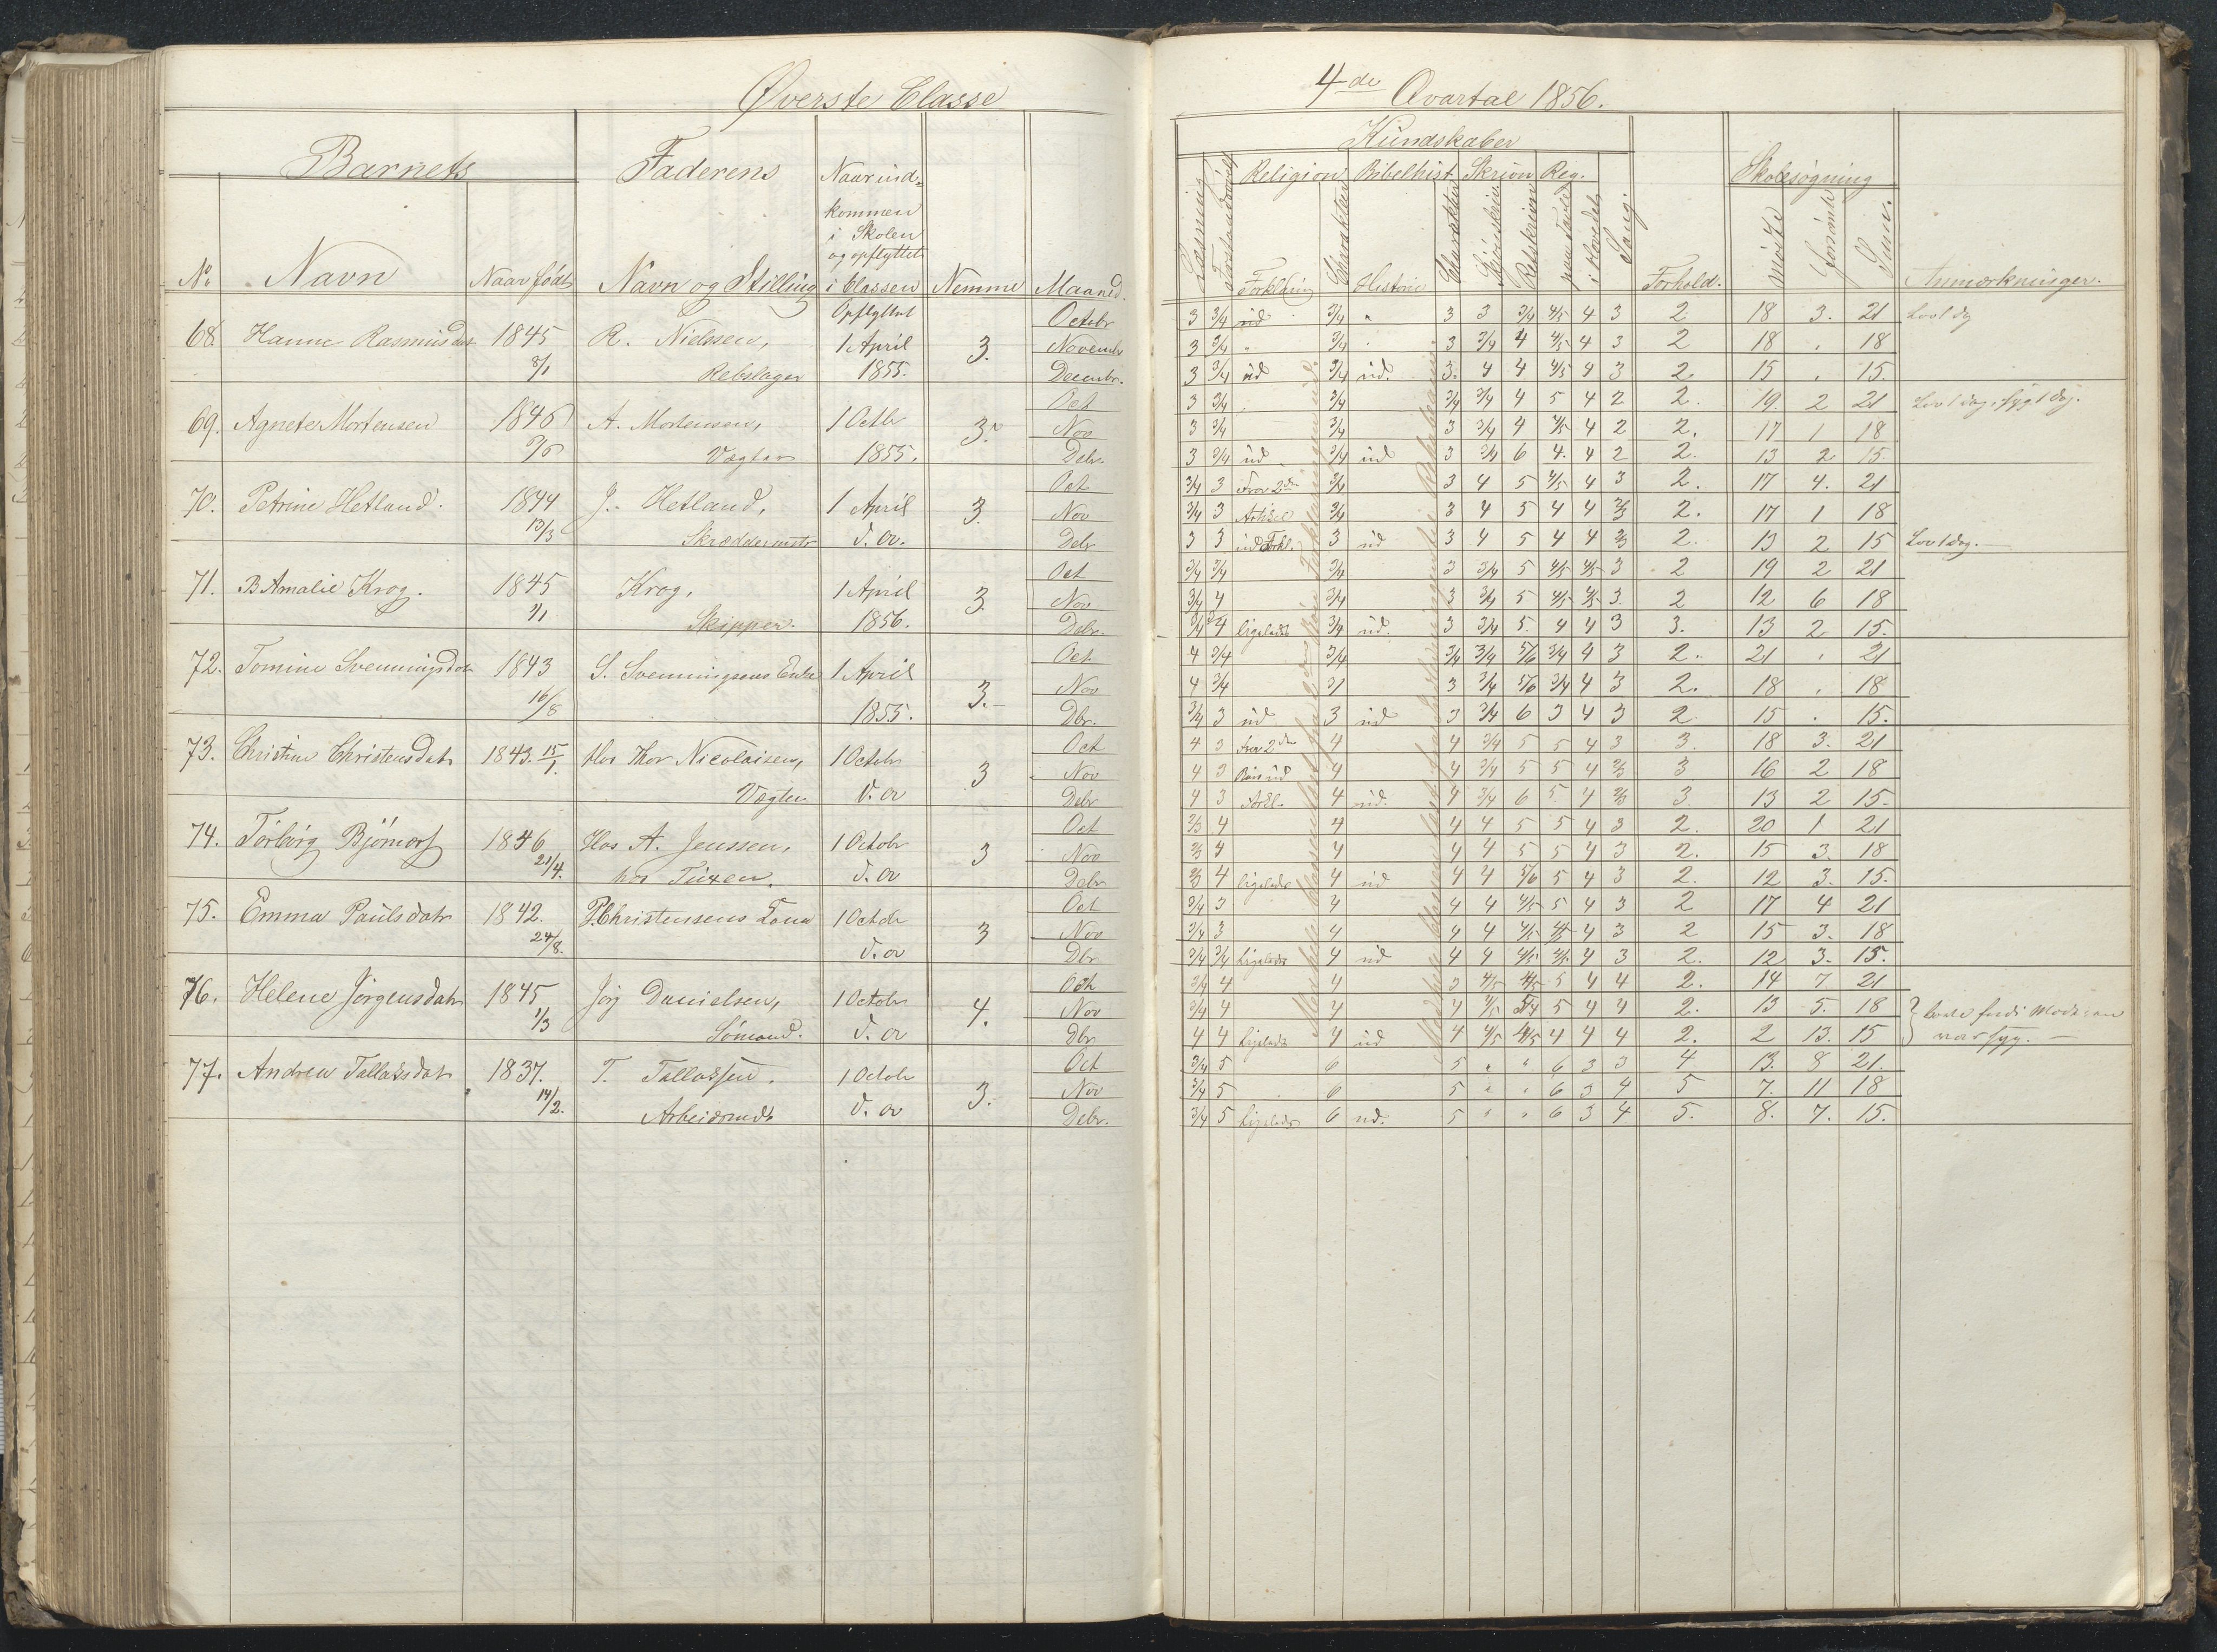 Øverste Classe
Barnets
Faderens
Naar ind-
kommen
i Skolen
og opflyttet
No Navn Naar født Navn og Stilling i Classen Nemme Maaned.
Opflyttet Octobr
68. Hanne Rasmusdat 1845 R. Nielssen, 1 April 3. Novembr
8/1 Rebslager 1855. Decembr.
Oct
69. Agnete Mortensen 1846 A. Mortensen, 1 Octbr 3. Nov
Vægter 1855. Debr.
Oct
70. Petrine Hetland. 1844 J. Hetland, 1 April 3. Nov
13/3 Skræddermstr d. a. Debr
Oct
71. B Amalie Krog. 1845 Krog, 1 April 3. Nov
Skipper. 1856. Debr.
72. Tomine Svenningsdat 1843 S. Svenningsens Enke 1 April Oct
16/8 3. Nov
1855. Dbr.
73. Christine Christensdatr 1843. 15/1. Hos Thor Nicolaisen, 1 Octobr Oct
3 Nov
Vægter d. a Debr
74. 1846 Hos A. Jenssen, 1 Octobr Oct
21/4. hos Tüxen. d. a 3 Nov
Debr
75. Emma Paulsdatr 1842. P. Christensens 1 Octobr Oct
24/8. 3 Nov
d. a Dbr
76. Helene Jørgensdatr 1845 Jørg Danielsen, 1 Octobr Oct
1/3 4. Nov
Sømand. d. a Dbr
77. Andrea Tallaksdatr 1837. T. Tallaksen. 1 Octobr Oct
14/2. 3. Nov
Arbeidsmd d. a Debr.
4de Qvartal 1856.
Kundskaber
Religion Bibelhist. Skrivn Reg. Skolesøgning
Læsning Forklaring Charakter Historie Charakter Skjønskrivn Retskrivn paa Tavle i Hovedet Sang. Forhold. mødte forsømte Sum. Anmærkninger.
3 3/4 ud 3/4 " 3 3 3/4 4/5 4 3 2 18 3. 21 Lov 1 dg
3 3/4 " 3/4 3 3/4 4 4/5 4 3 2 18 . 18
3 3/4 ud 3/4 ud. 3. 4 4 4/5 4 3 2. 15 . 15.
3 3/4 3/4 3/4 3/4 4 5 4 2 2. 19. 2 21 Lov 1 dag, syg 1 dag.
3 3/4 3/4 3 3/4 4 4/5 4 2 2. 17 1 18
3 3/4 ud 3/4 ud 3 3/4 6 4. 4 2 2. 13 2 15
3/4 3 Fra 2den 3/4 3 4 5 4/5 4 3 2. 17 4. 21
3/4 3 Artikel 3/4 3 4 5 4 4 2/3 2. 17 1 18
3 3 ud Forkl. 3 ud 3 4 5 4 4 2/3 2. 13 2 15 Lov 1 dag.
3/4 3/4 3/4 3 3/4 5 4/5 4/5 3 2 19 2 21
3/4 4 3/4 3 3/4 5 4/5 4/5 3. 2 12 6 18
3/4 4 ligeledes 3/4 ud. 3 3/4 5. 4 4 3 3. 13 2 15.
4 3/4 3/4 3/4 3/4 5/6 3/4 4 3 2. 21 . 21
4 3/4 3 3/4 5/6 3/4 4 3 2. 18 . 18
3/4 3 ud 3 ud 3 3/4 6 3 4 3 2 15 . 15.
4 3 Fra 2den 4 4 3/4 5 5 4 3 3. 18 3. 21
4 3 ud 4 4 3/4 5 5 4 2/3 3 16 2 18
4 3 4 ud. 4 3/4 6 5. 4 2/3 3. 13 2 15.
2/3 4 4 4 4 5 5 4 3 2. 20 1 21
2/3 4 4 4 4 5 5 4 3 2. 15 3. 18
2/3 4 ligeledes 4 ud 4 4 5/6 5 4 3 2. 12 3. 15.
3/4 3 4 4 4 4/5 5 4 3 2 17 4 21
3/4 3 4 4 4 4/5 4/5 4 3 2 15 3. 18
3/4 3/4 Ligeledes 4 ud 4 4 4/5 4/5 4 3 2. 12 3. 15.
3/4 4 4 3 4/5 4/5 5 4 4 2. 14 7 21
3/4 4 4 4 4/5 5 4 4 2. 13 5. 18
4 4 Ligeledes 4 ud 4 4/5 4/5 4 4 4 2. 2 13. 15 var syg.
3/4 5 6 5 " " 6 3 3 4 13. 8 21.
3/4 5 6 5 " " 6 3 4 5 7. 11 18
3/4 5 Ligeledes 6 ud. 5 " " 6 3 4 5. 8. 7. 15.